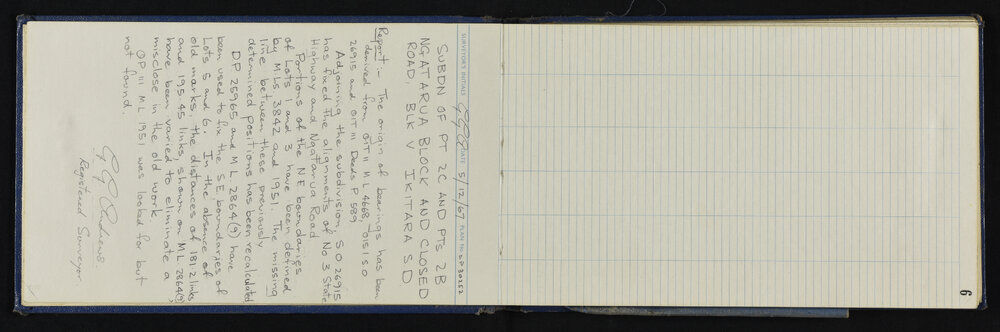 SURVEYOR'S INITIALS DATE 5/12/67 PLAN No. DP 30252
SUBDN OF PT 2C AND PTS 2B
NGATARUA BLOCK AND CLOSED
ROAD, BLK V IKITARA SD
Report:- The origin of bearings has been
derived from OIT II ML 4668, OIS I SO
26915 and OIT III Deeds P 589
Adjoining the subdivision, SO 26915
has fixed the alignments of No 3 State
Highway and Ngatarua Road
Portions of the NE boundaries
of Lots 1 and 3 have been defined
by MLs 3842 and 1951. The missing
line between these previously
determined positions has been recalculated
DP 25965 and ML 2864(9) have
been used to fix the SE boundaries of
Lots 5 and 6. In the absence of
old marks, the distances of 181.2 links
and 195.45 links, shown on ML 2864(9),
have been varied to eliminate a
misclose in the old work.
OP III ML 1951 was looked for but
not found.
Andrews.
Registered Surveyor.
6